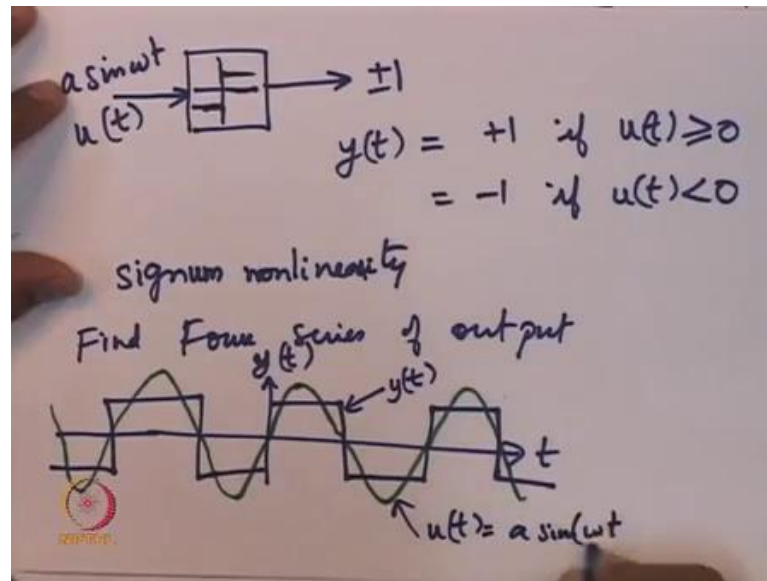 a sin ωt
u(t)
±1
y(t) = +1 if u(t) ≥ 0
= -1 if u(t) < 0
signum nonlinearity
Find Four series of output
y(t)
y(t)
t
u(t) = a sin(ωt
NPTEL